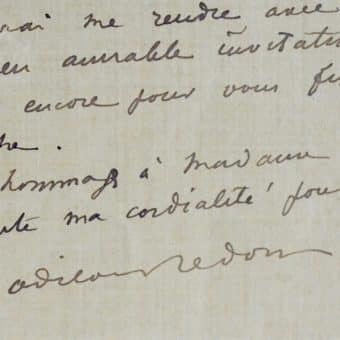 rai me rendre avec
en aimable invitati
encore pour vous fé
he.
hommage à Madame
ute ma cordialité pou
odilon redon